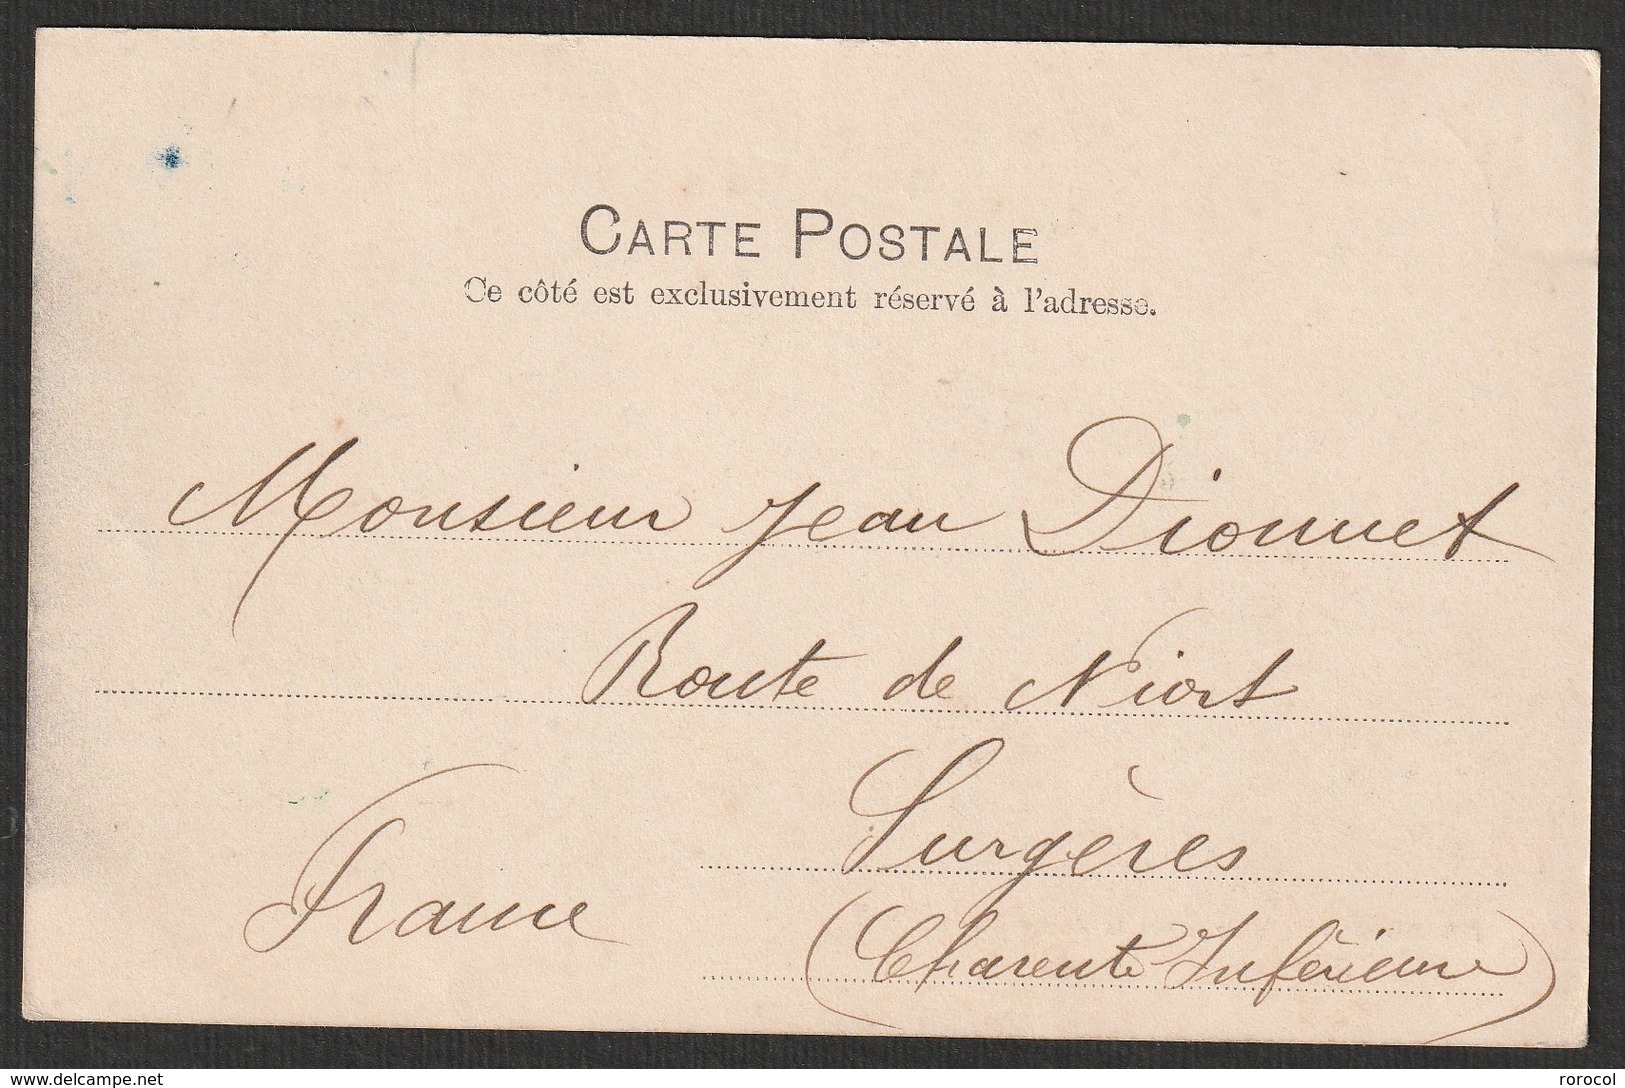 CARTE POSTALE
Ce côté est exclusivement réservé à l'adresse.
Monsieur Jean Dionnet
Route de Niort
Surgères
France
(Charente Inférieure)
www.delcampe.net
rorocol